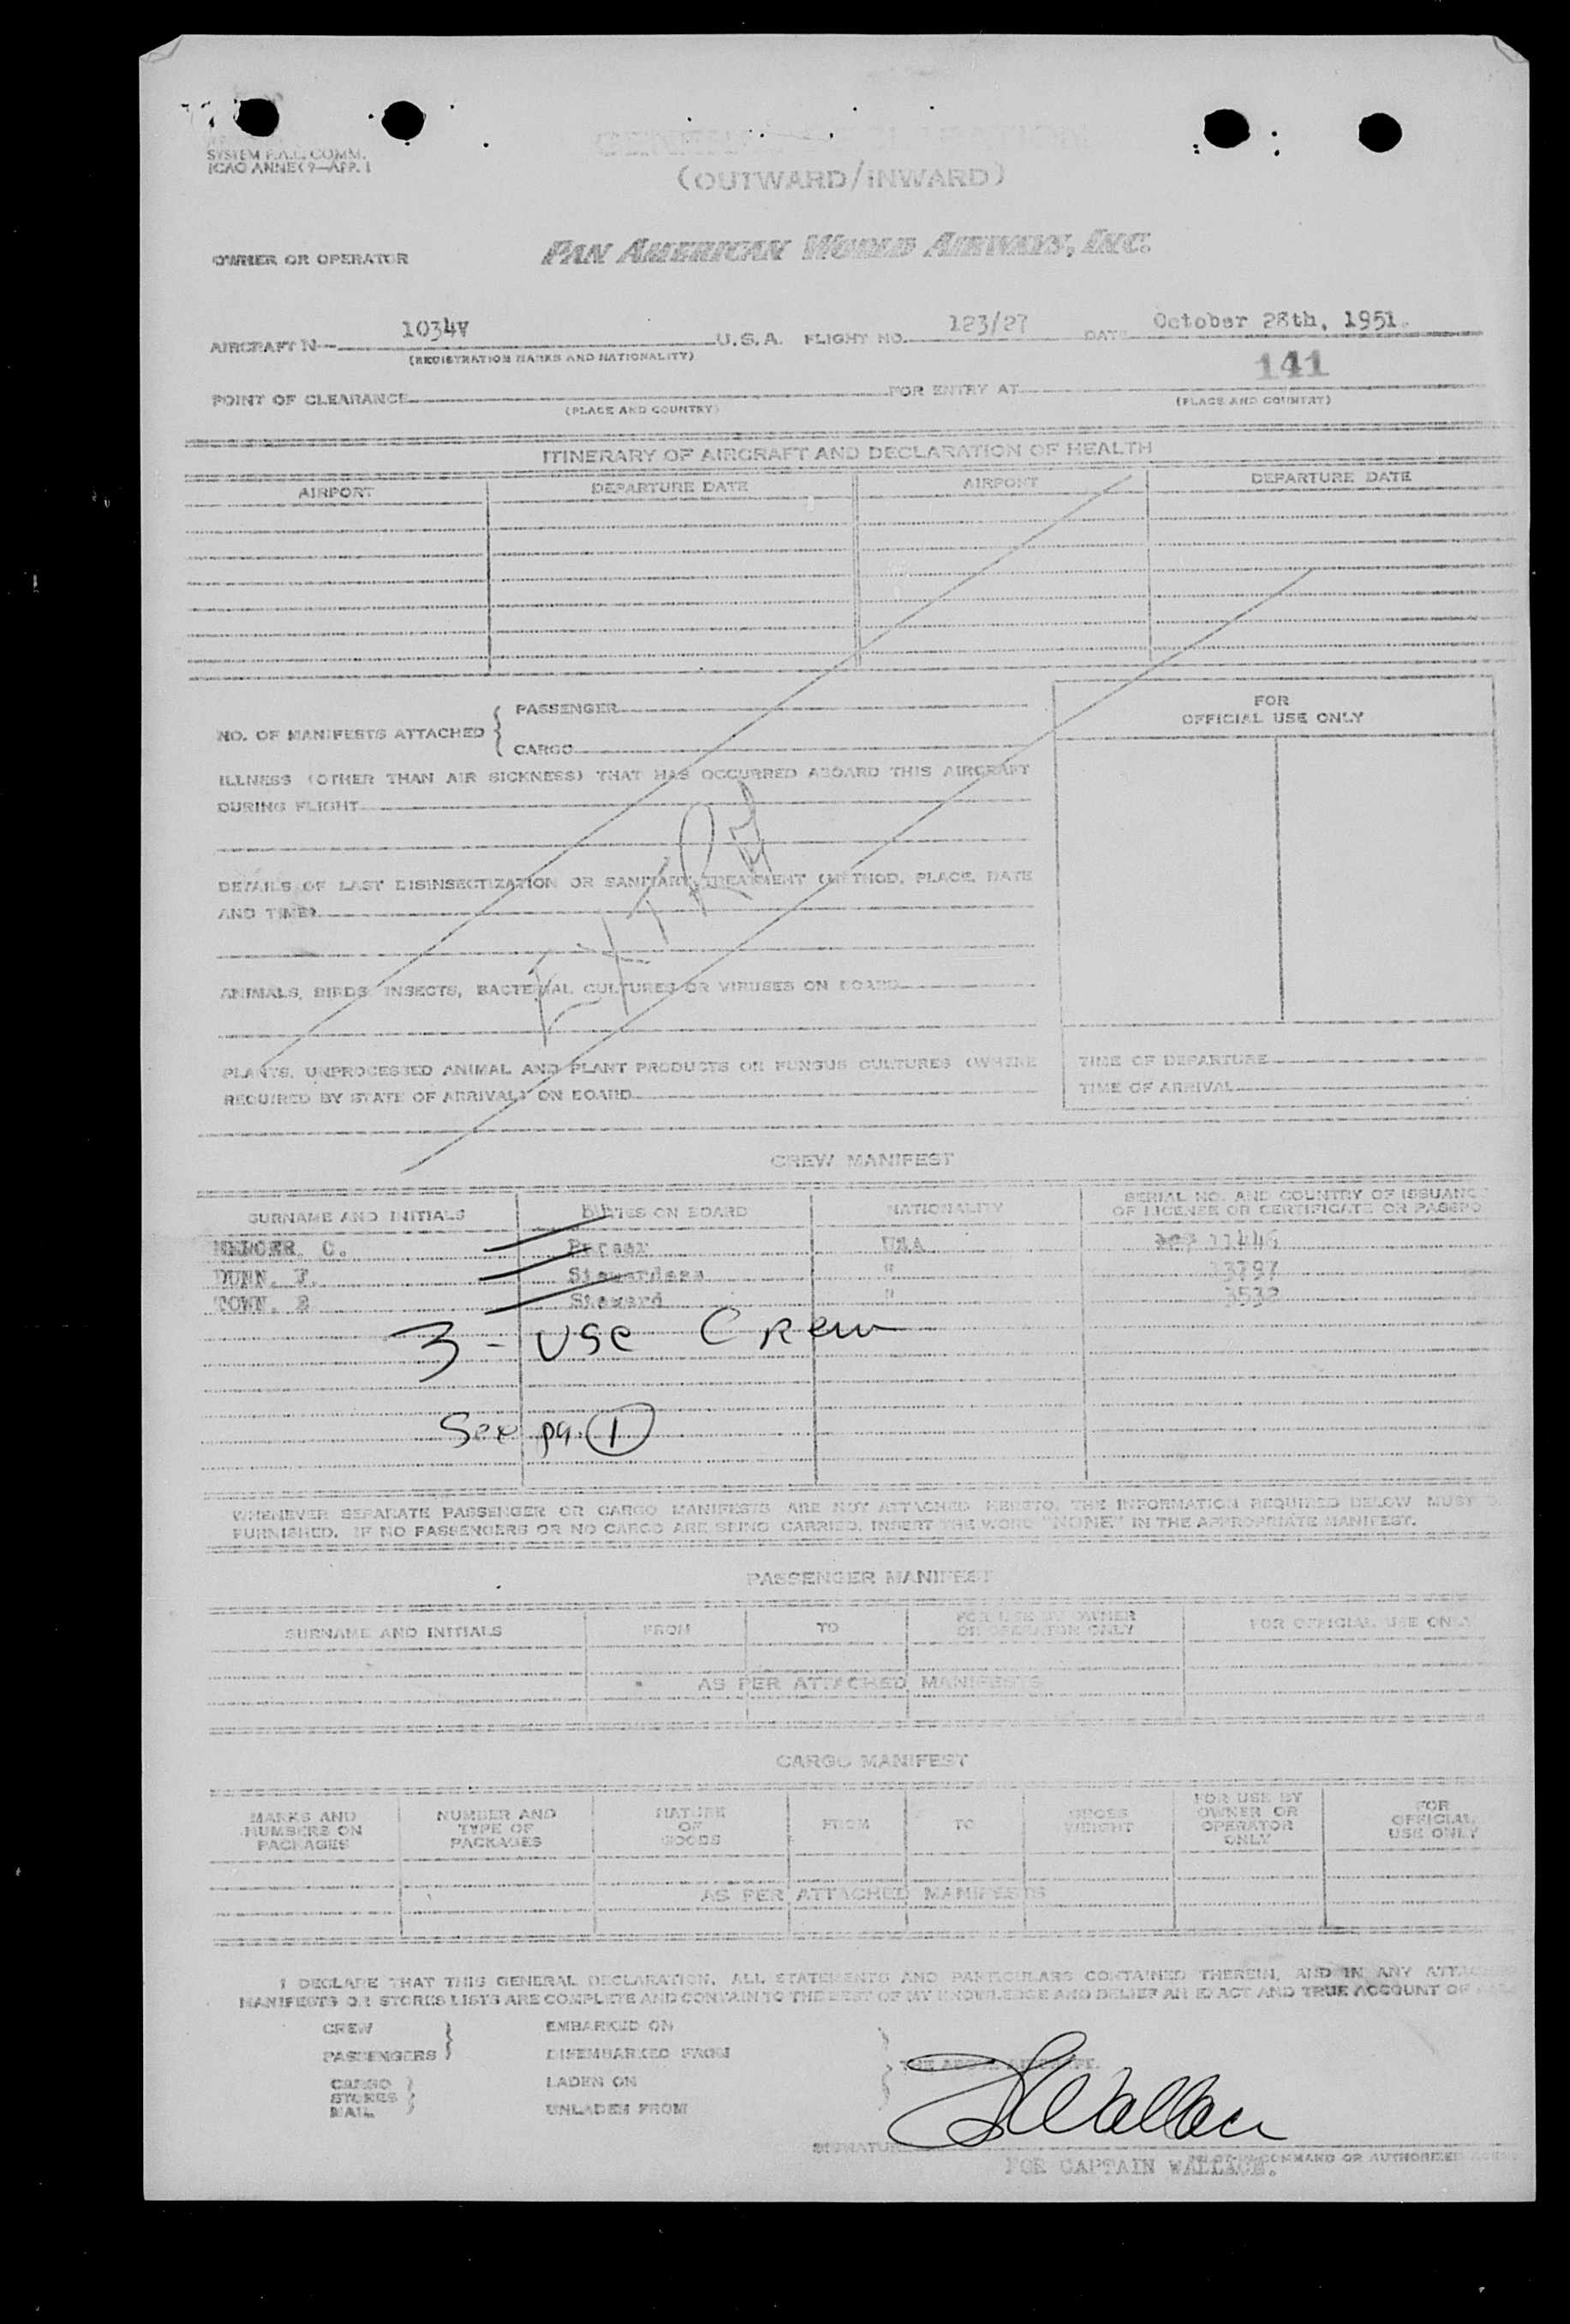 SYSTEM F.A.L. COMM.
ICAO ANNEX 9—APP. 1
(OUTWARD/INWARD)
OWNER OR OPERATOR PAN AMERICAN WORLD AIRWAYS, INC.
AIRCRAFT N— 1034V U.S.A. FLIGHT NO. 123/27 DATE October 28th, 1951.
(REGISTRATION MARKS AND NATIONALITY)
141
POINT OF CLEARANCE FOR ENTRY AT
(PLACE AND COUNTRY) (PLACE AND COUNTRY)
ITINERARY OF AIRCRAFT AND DECLARATION OF HEALTH
AIRPORT DEPARTURE DATE AIRPORT DEPARTURE DATE
NO. OF MANIFESTS ATTACHED { PASSENGER
CARGO
FOR
OFFICIAL USE ONLY
ILLNESS (OTHER THAN AIR SICKNESS) THAT HAS OCCURRED ABOARD THIS AIRCRAFT
DURING FLIGHT
DETAILS OF LAST DISINSECTIZATION OR SANITARY TREATMENT (METHOD, PLACE, DATE
AND TIME)
EXTRA
ANIMALS, BIRDS, INSECTS, BACTERIAL CULTURES OR VIRUSES ON BOARD
PLANTS, UNPROCESSED ANIMAL AND PLANT PRODUCTS OR FUNGUS CULTURES (WHERE
REQUIRED BY STATE OF ARRIVAL) ON BOARD
TIME OF DEPARTURE
TIME OF ARRIVAL
CREW MANIFEST
SURNAME AND INITIALS DUTIES ON BOARD NATIONALITY SERIAL NO. AND COUNTRY OF ISSUANC
OF LICENSE OR CERTIFICATE OR PASSPO
MERCER, C. Purser USA 11446
DUNN, Stewardess " 13797
TOWN, Steward " 3532
3 - USC CRew
See pg. 1
WHENEVER SEPARATE PASSENGER OR CARGO MANIFESTS ARE NOT ATTACHED HERETO, THE INFORMATION REQUIRED BELOW MUST
FURNISHED. IF NO PASSENGERS OR NO CARGO ARE BEING CARRIED, INSERT THE WORD "NONE" IN THE APPROPRIATE MANIFEST.
PASSENGER MANIFEST
SURNAME AND INITIALS FROM TO FOR USE BY OWNER
OR OPERATOR ONLY FOR OFFICIAL USE ONLY
AS PER ATTACHED MANIFESTS
CARGO MANIFEST
MARKS AND
NUMBERS ON
PACKAGES NUMBER AND
TYPE OF
PACKAGES NATURE
OF
GOODS FROM TO GROSS
WEIGHT FOR USE BY
OWNER OR
OPERATOR
ONLY FOR
OFFICIAL
USE ONLY
AS PER ATTACHED MANIFESTS
I DECLARE THAT THIS GENERAL DECLARATION, ALL STATEMENTS AND PARTICULARS CONTAINED THEREIN, AND IN ANY ATTACHED
MANIFESTS OR STORES LISTS ARE COMPLETE AND CONTAIN TO THE BEST OF MY KNOWLEDGE AND BELIEF AN EXACT AND TRUE ACCOUNT OF
CREW EMBARKED ON
PASSENGERS DISEMBARKED FROM THE ABOVE AIRCRAFT.
CARGO LADEN ON
STORES
MAIL UNLADEN FROM
Wallace
SIGNATURE
FOR CAPTAIN WALLACE. COMMAND OR AUTHORIZED